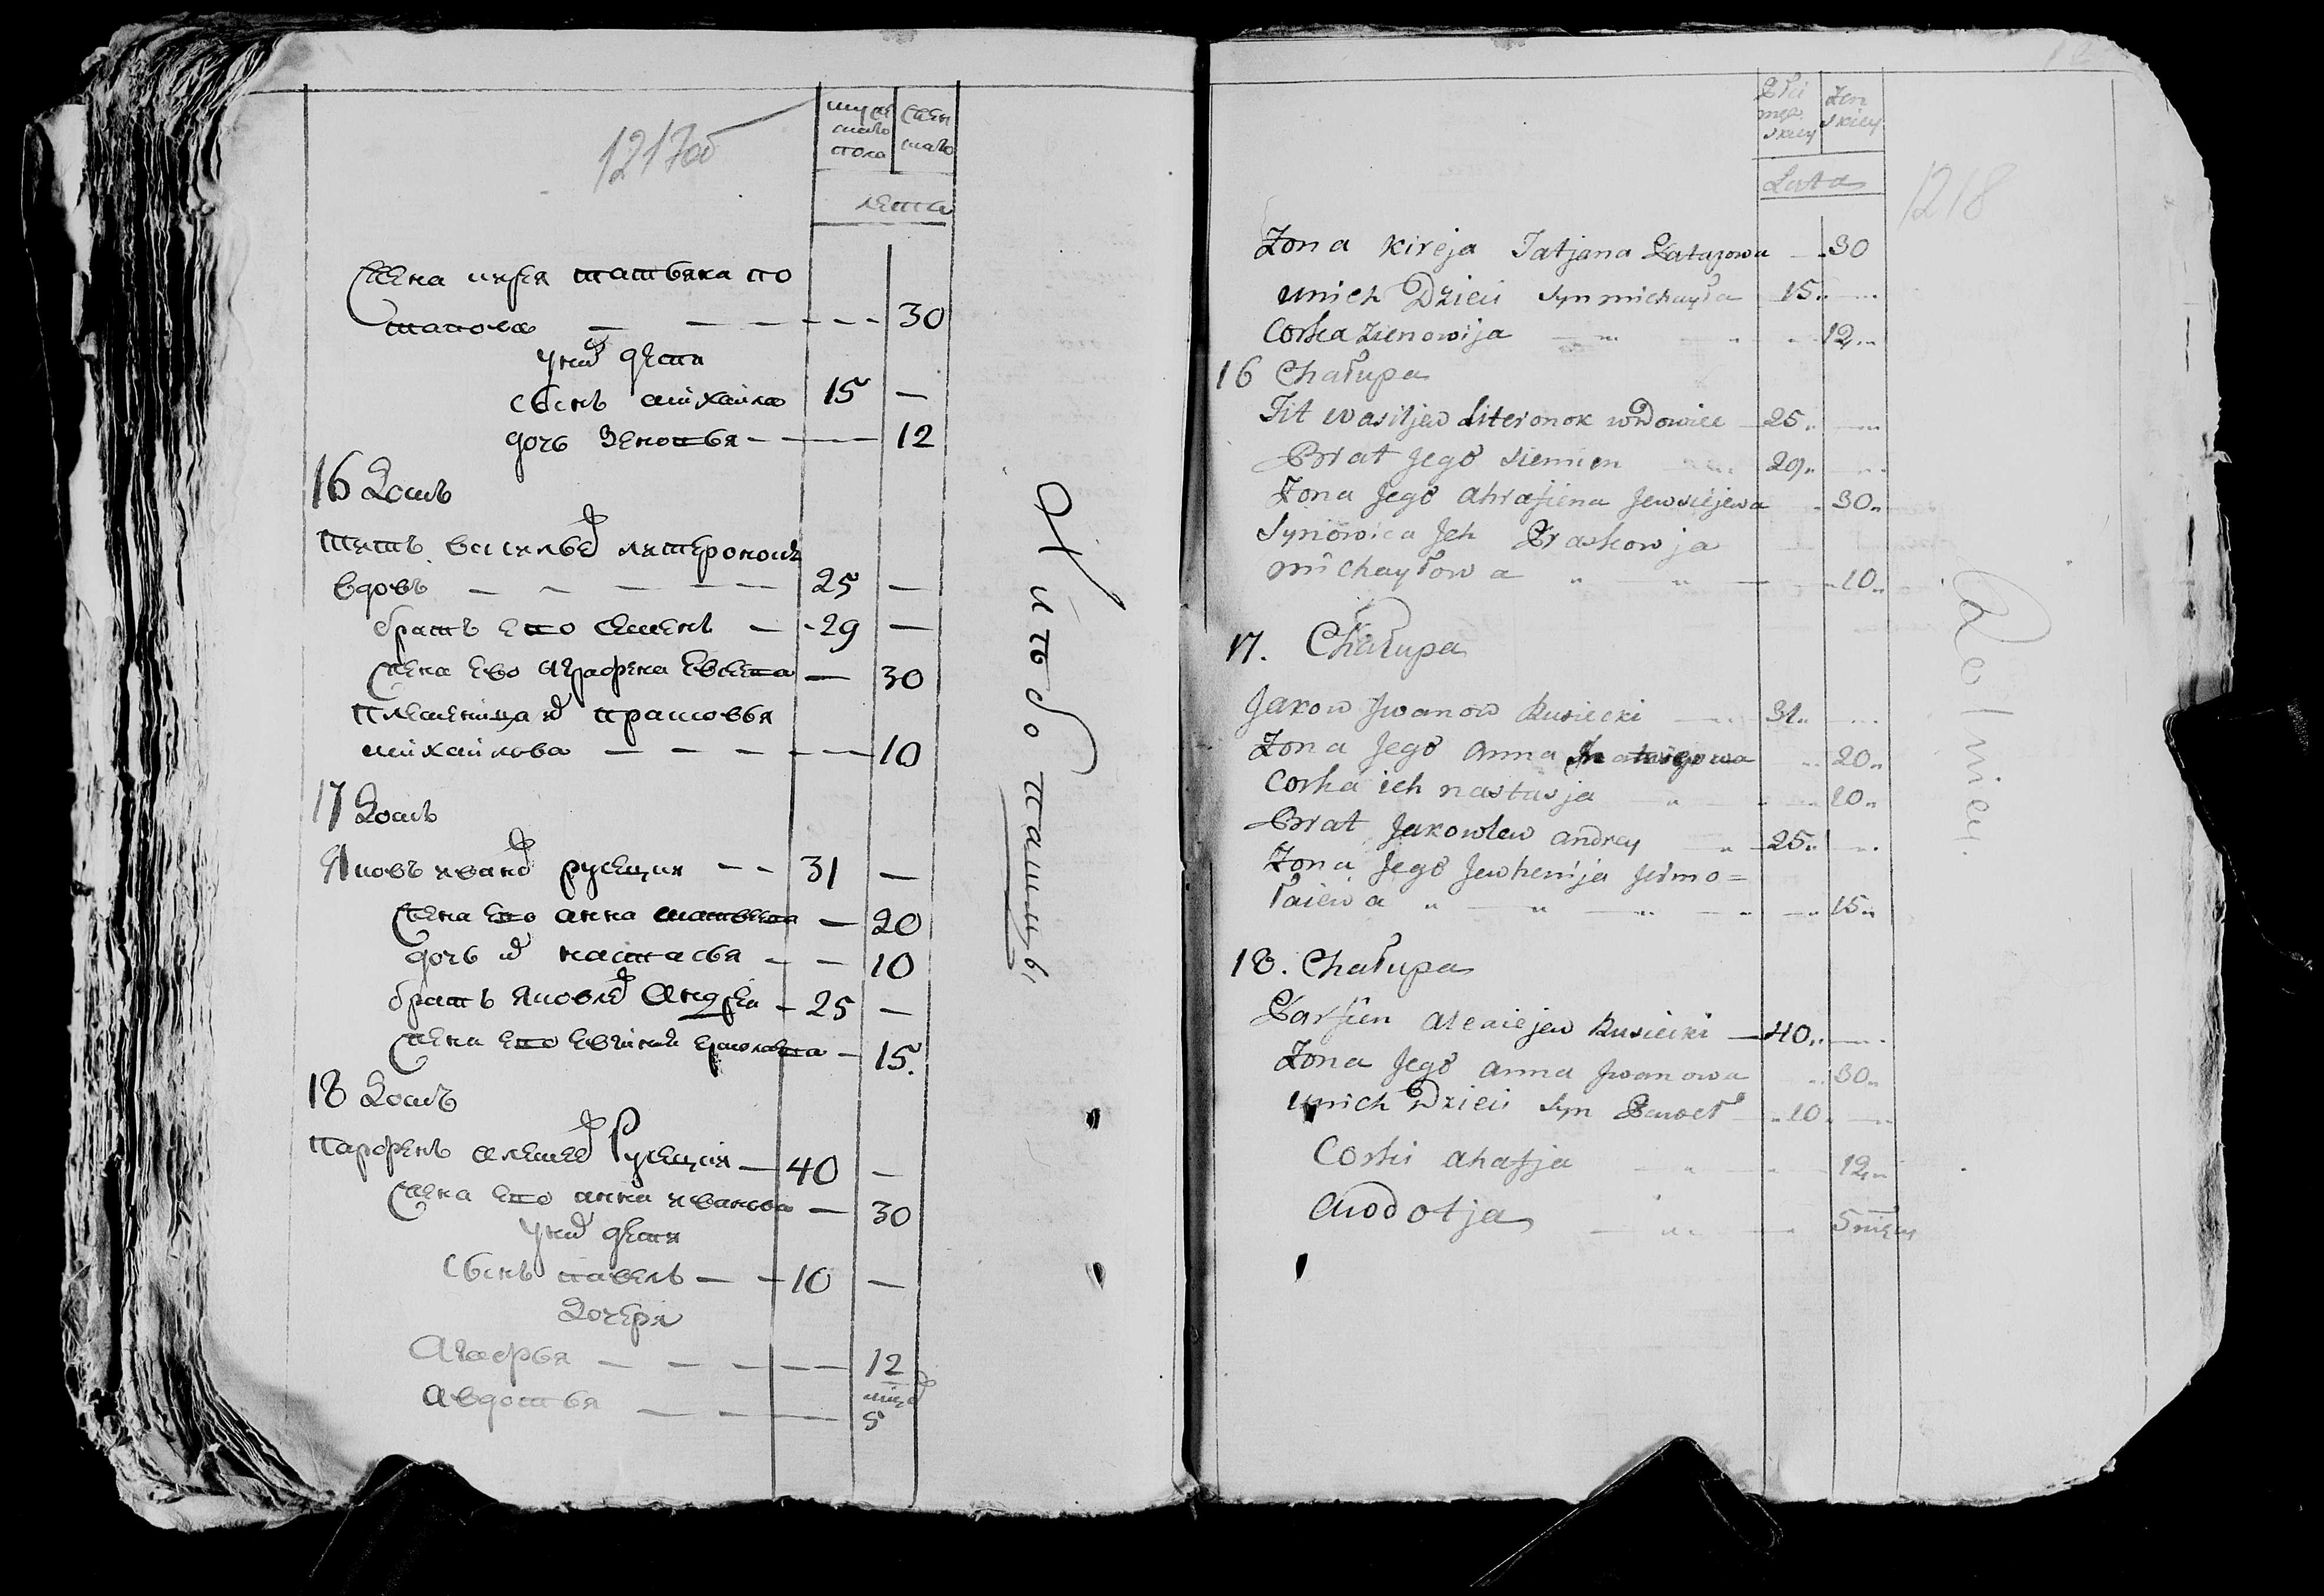 1217об
мужескаго пола
женскаго
лета
Жена кирея татьяна по
тапова — — — — 30
у них дети
сынъ михаила 15 —
дочь Зеновья — — 12
16 Домъ
титъ васильев литеронокъ
вдовъ — — — — — 25 —
братъ ево семенъ — 29 —
жена ево аграфена Евсеева — 30
племеница их прасковья
михаилова — — — — 10
17 Домъ
Яковъ иванов русецки — — 31 —
жена ево анна матвеева — 20
дочь их настасья — — 10
братъ яковлев Андрей — 25 —
жена ево Евгиния ермолаева — 15.
18 Домъ
парфенъ алексеев Русецкия — 40 —
жена ево анна иванова — 30
у них дети
Сынъ павелъ — — 10 —
Дочери
Агафья — — — — 12
Авдотья — — — месяцев 5
Płci męskiey
Żenskiey
Lata
1218
Zona Kireja Tatjana Patapowa — 30
unich Dzieci syn michayła 15.. —
Corka zienowija — 12..
16 Chałupa
Tit wasiljew Literonok wdowiec — 25.. —
Brat Jego siemien 29.. —
Zona Jego ahrafiena Jewsiejewa 30..
Synowica Jch Praskowja
michayłowa — 10..
17. Chałupa
Jakow Jwanow Rusiecki — 31.. —
Zona Jego anna 20..
Corka ich nastasja — 10..
Brat Jakowlew andrey — 25.. —
Zona Jego Jewhenija Jermo=
łaiewa — 15..
18. Chałupa
Parfien alexiejew Rusiecki — 40.. —
Zona Jego anna Jwanowa 30..
unich Dzieci syn Paweł 10.. —
Corki ahafja — 12..
awdotja — 5 mięcy